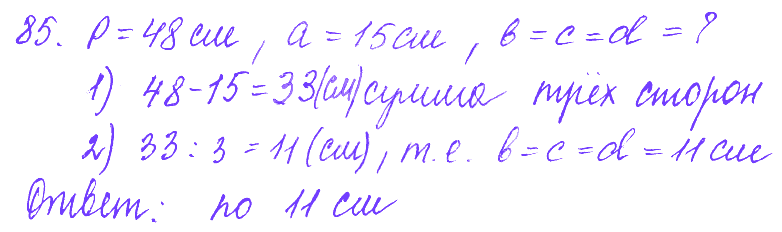 85. P = 48 см, a = 15 см, b = c = d = ?
1) 48 - 15 = 33 (см) сумма трёх сторон
2) 33 : 3 = 11 (см), т.е. b = c = d = 11 см
Ответ: по 11 см